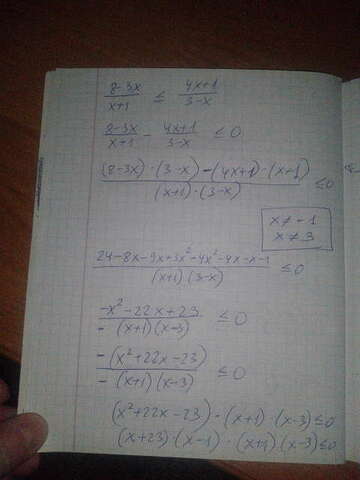 (8-3x)/(x+1) ≤ (4x+1)/(3-x)
(8-3x)/(x+1) - (4x+1)/(3-x) ≤ 0
((8-3x)·(3-x)-(4x+1)·(x+1))/((x+1)·(3-x)) ≤ 0
x ≠ -1
x ≠ 3
(24-8x-9x+3x²-4x²-4x-x-1)/((x+1)(3-x)) ≤ 0
(-x²-22x+23)/(-(x+1)(x-3)) ≤ 0
(-(x²+22x-23))/(-(x+1)(x-3)) ≤ 0
(x²+22x-23)·(x+1)·(x-3) ≤ 0
(x+23)·(x-1)·(x+1)·(x-3) ≤ 0